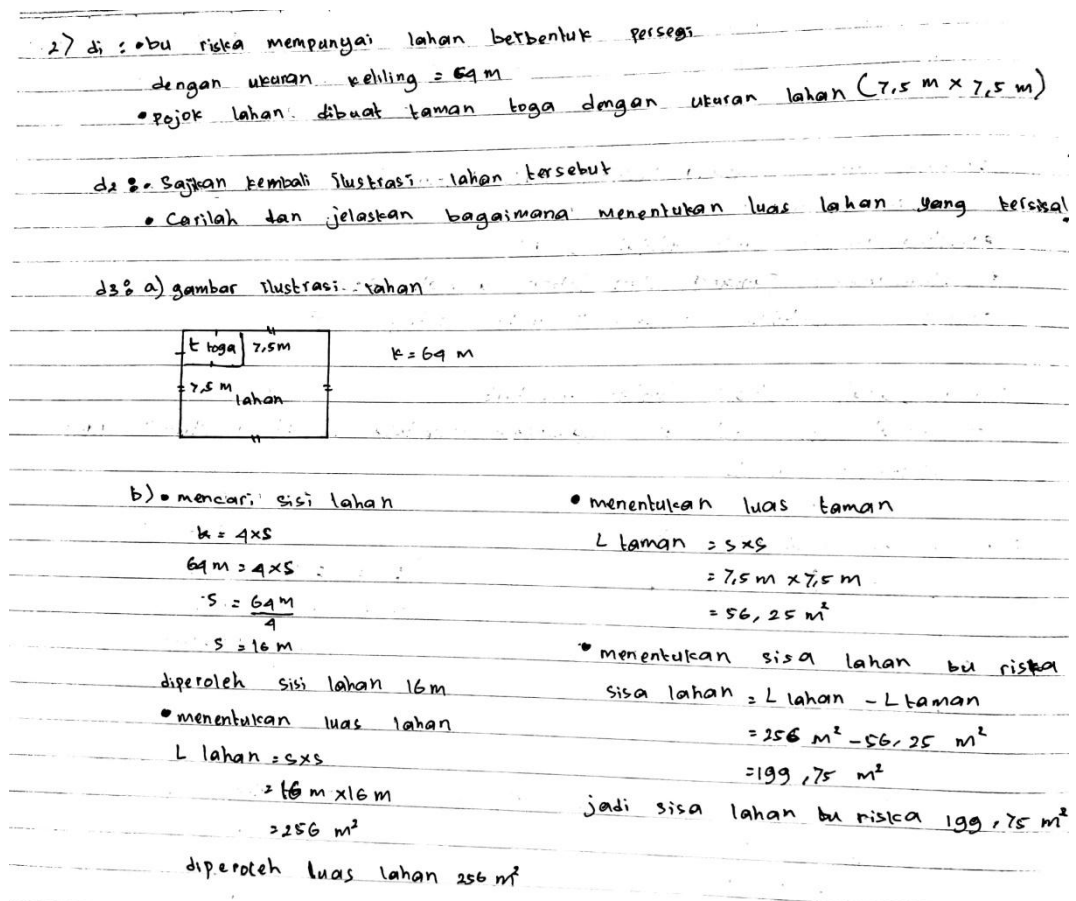 2) d1 : • bu riska mempunyai lahan berbentuk persegi
dengan ukuran keliling = 64 m
• Pojok lahan dibuat taman toga dengan ukuran lahan (7,5 m × 7,5 m)
d2 : • Sajikan kembali ilustrasi lahan tersebut
• Carilah dan jelaskan bagaimana menentukan luas lahan yang tersisa!
d3 : a) gambar ilustrasi lahan
t toga 7,5m
k = 64 m
7,5 m
lahan
b) • mencari sisi lahan
k = 4×s
64 m = 4×s
s = 64 m
4
s = 16 m
diperoleh sisi lahan 16m
• menentukan luas lahan
L lahan = s×s
= 16 m ×16 m
= 256 m²
diperoleh luas lahan 256 m²
• menentukan luas taman
L taman = s×s
= 7,5 m ×7,5 m
= 56,25 m²
• menentukan sisa lahan bu riska
sisa lahan = L lahan - L taman
= 256 m² - 56,25 m²
= 199,75 m²
jadi sisa lahan bu riska 199,75 m²